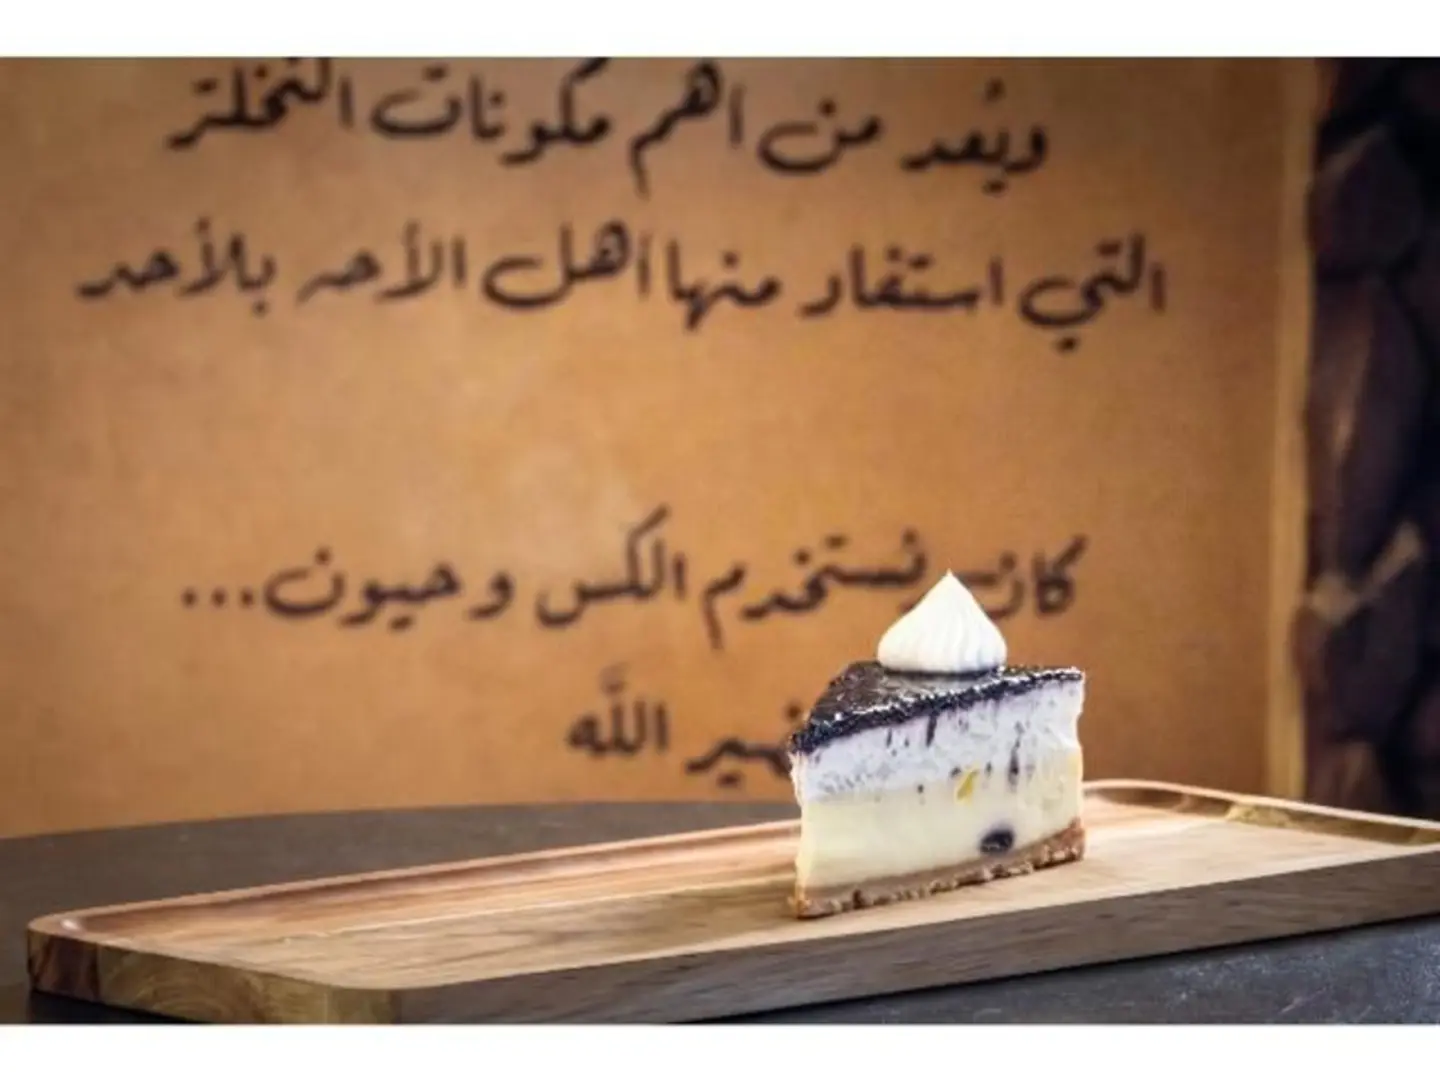 ويُعد من اهم مكونات
التي استفاد منها اهل الأحد بالأحد
كان نستخدم الكس و حيون...
اللَّه